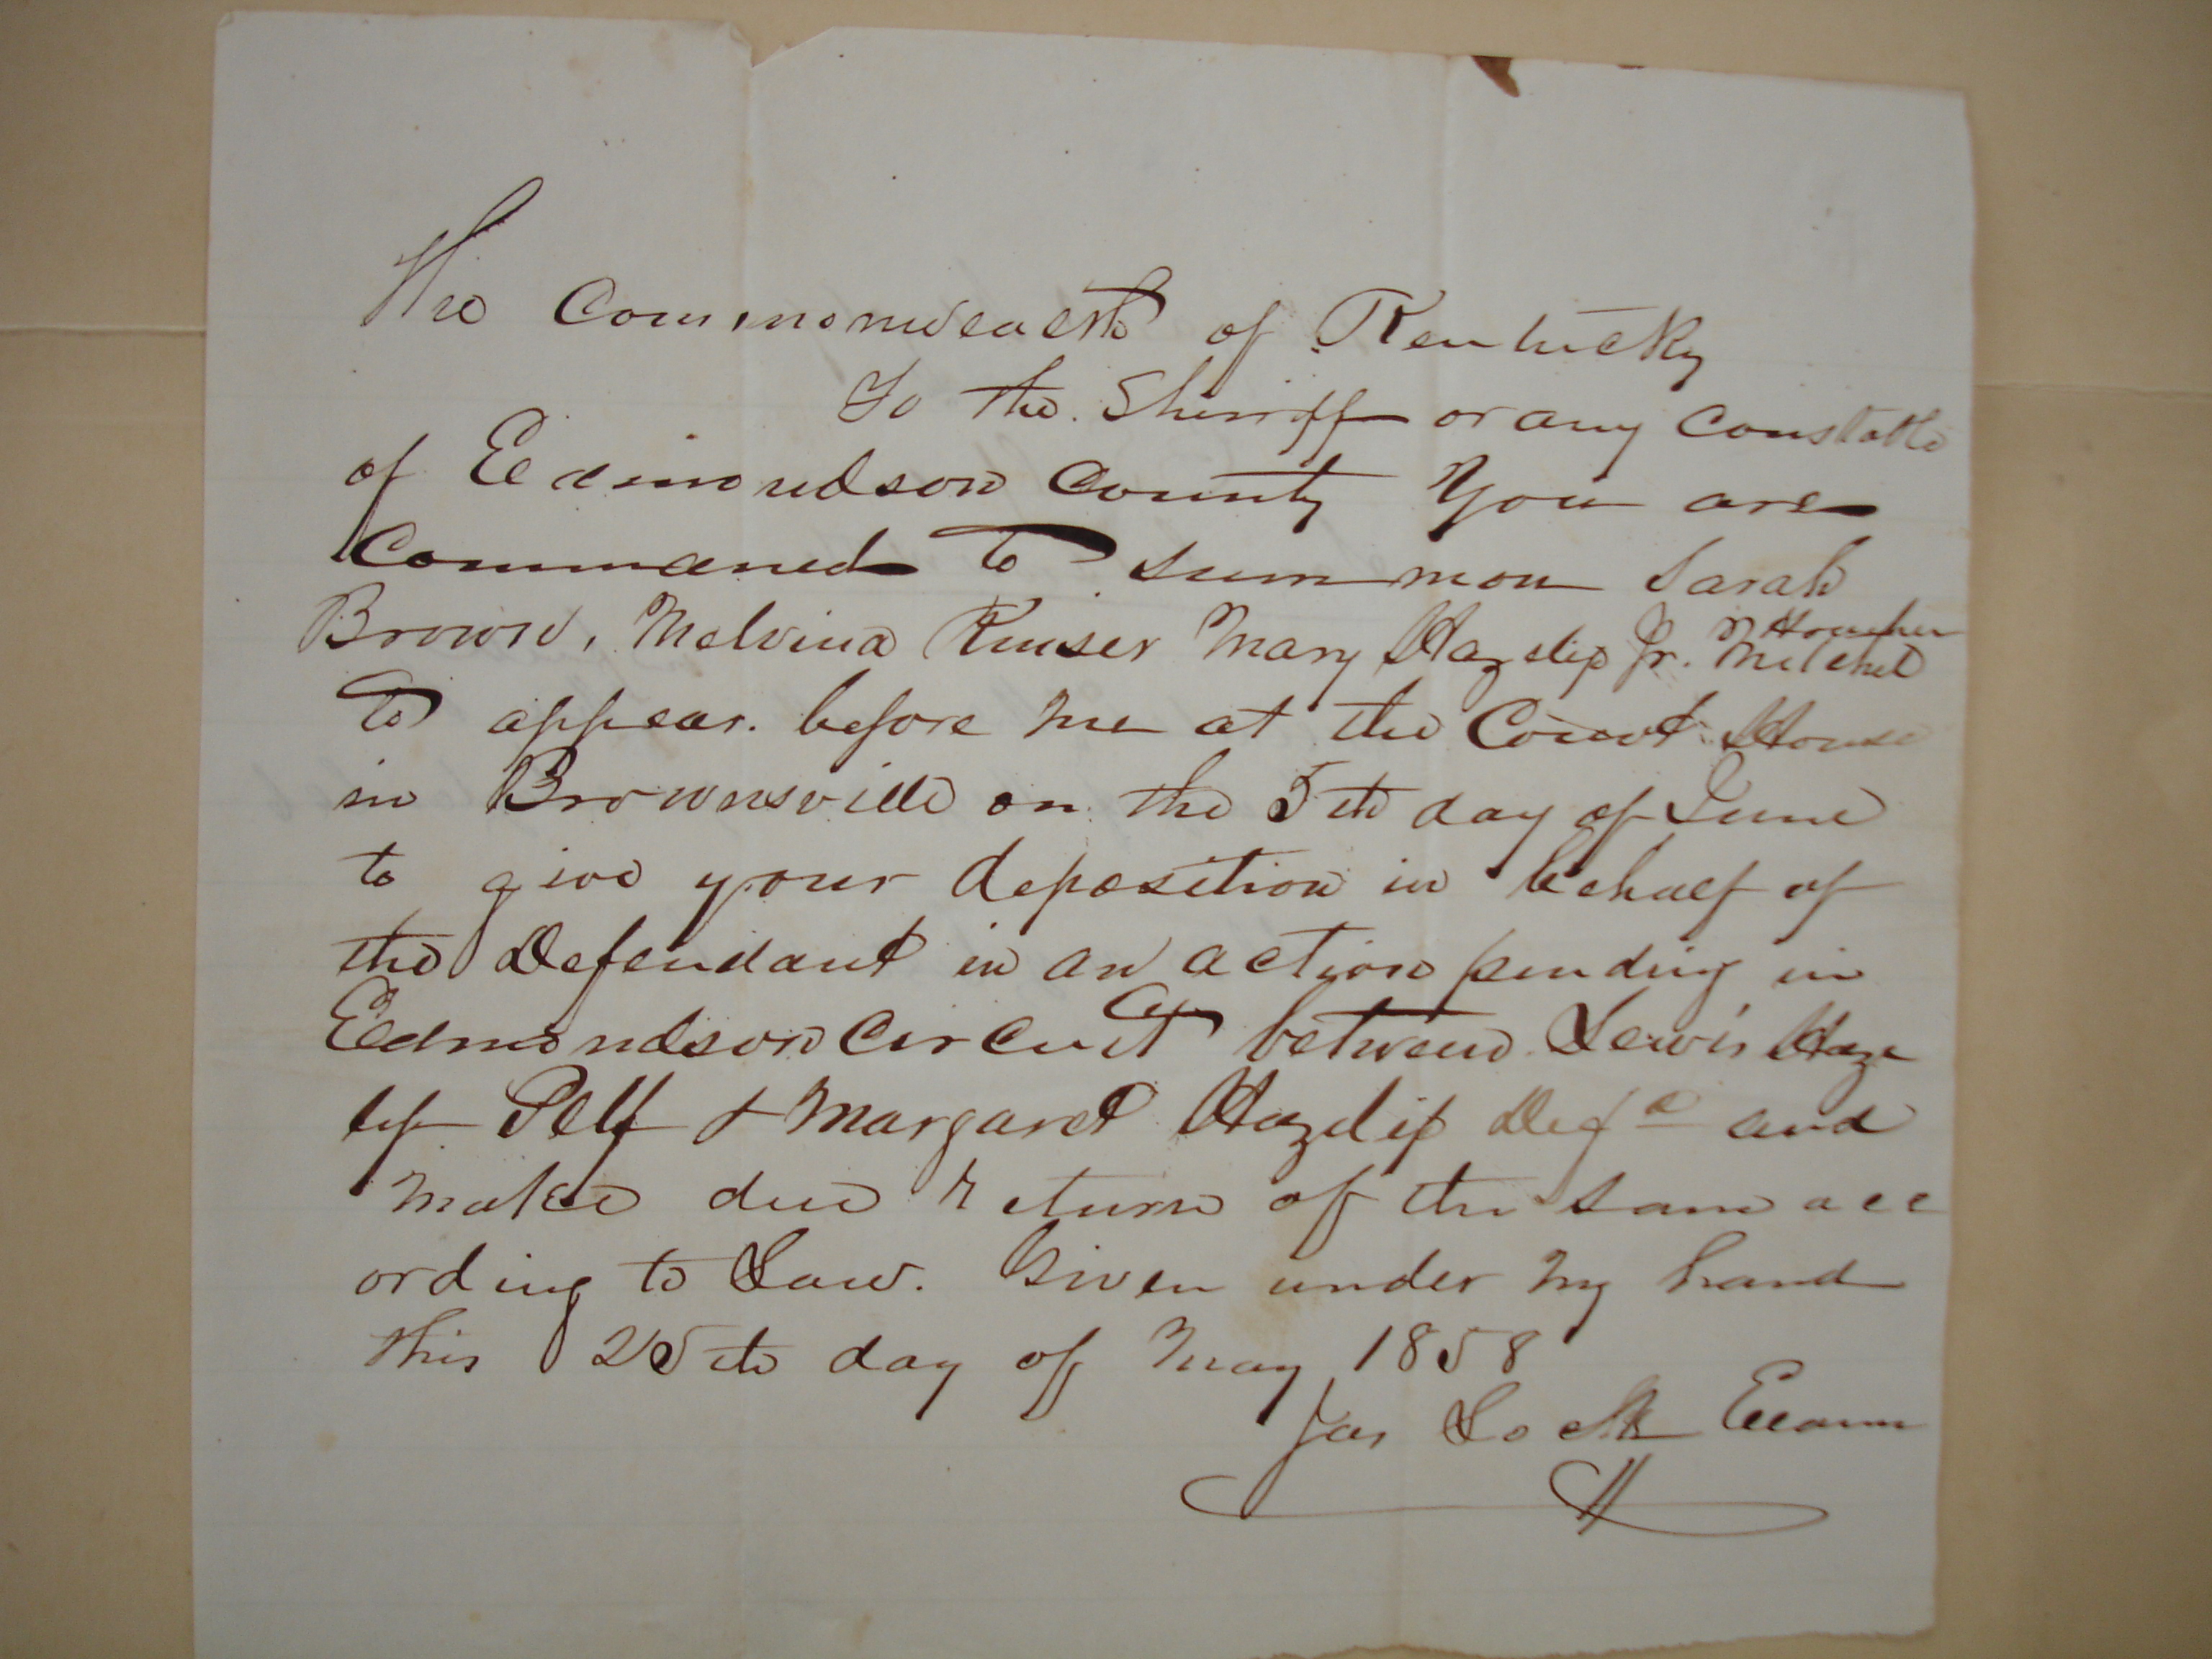 The Commonwealth of Kentucky
To the Sheriff or any Constable
of Edmondson County You are
Commaned to summon Sarah
Brown, Melvina Kinser Mary Hazelip Jr. Mitchel
to appear before me at the Court House
in Brownsville on the 5th day of June
to give your deposition in behalf of
the Defendant in an action pending in
Edmondson Circuit between Lewis Haze
lip Plff & Margaret Hazelip Def and
make due return of the same acc
ording to Law. Given under my hand
this 25th day of May 1858
Jas Lock